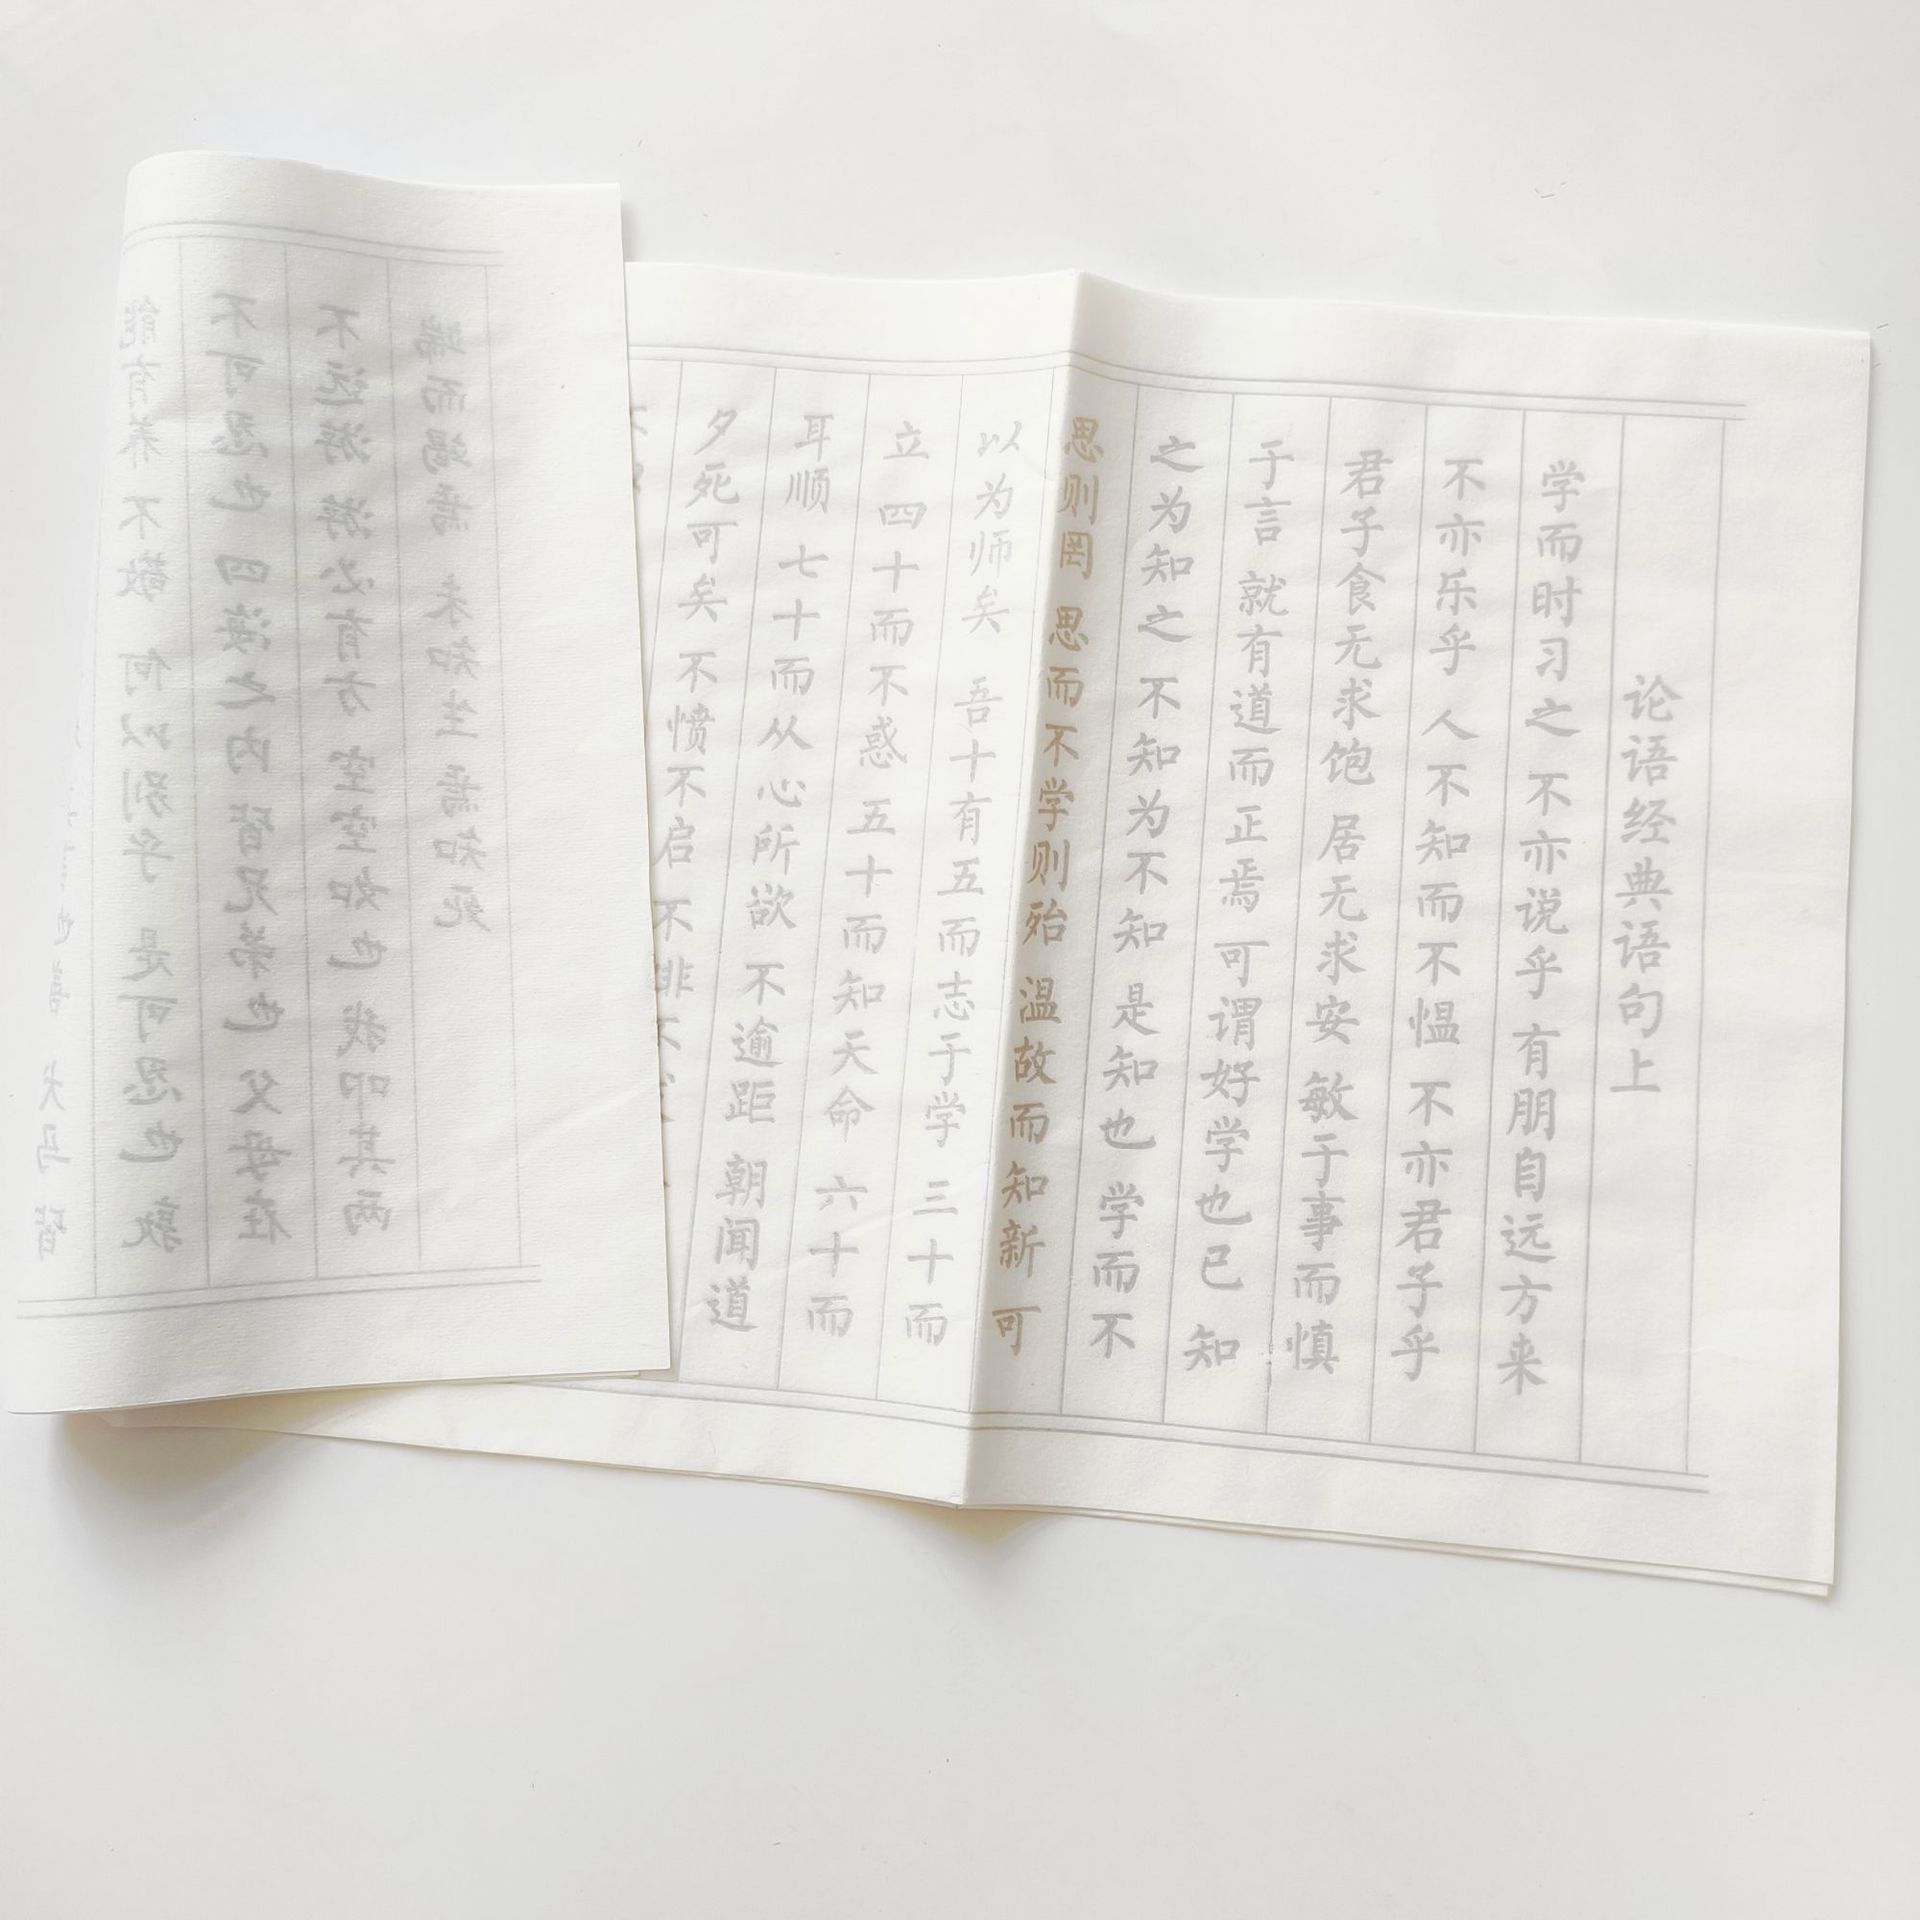 论语经典语句上
学而时习之 不亦说乎 有朋自远方来
不亦乐乎 人不知而不愠 不亦君子乎
君子食无求饱 居无求安 敏于事而慎
于言 就有道而正焉 可谓好学也已 知
之为知之 不知为不知 是知也 学而不
思则罔 思而不学则殆 温故而知新 可
以为师矣 吾十有五而志于学 三十而
立 四十而不惑 五十而知天命 六十而
耳顺 七十而从心所欲 不逾距 朝闻道
夕死可矣 不愤不启 不悱不
能有养 不敬 何以别乎 是可忍也 孰
不可忍也 四海之内 皆兄弟也 父母在
不远游 游必有方 空空如也 我叩其两
端而竭焉 未知生 焉知死